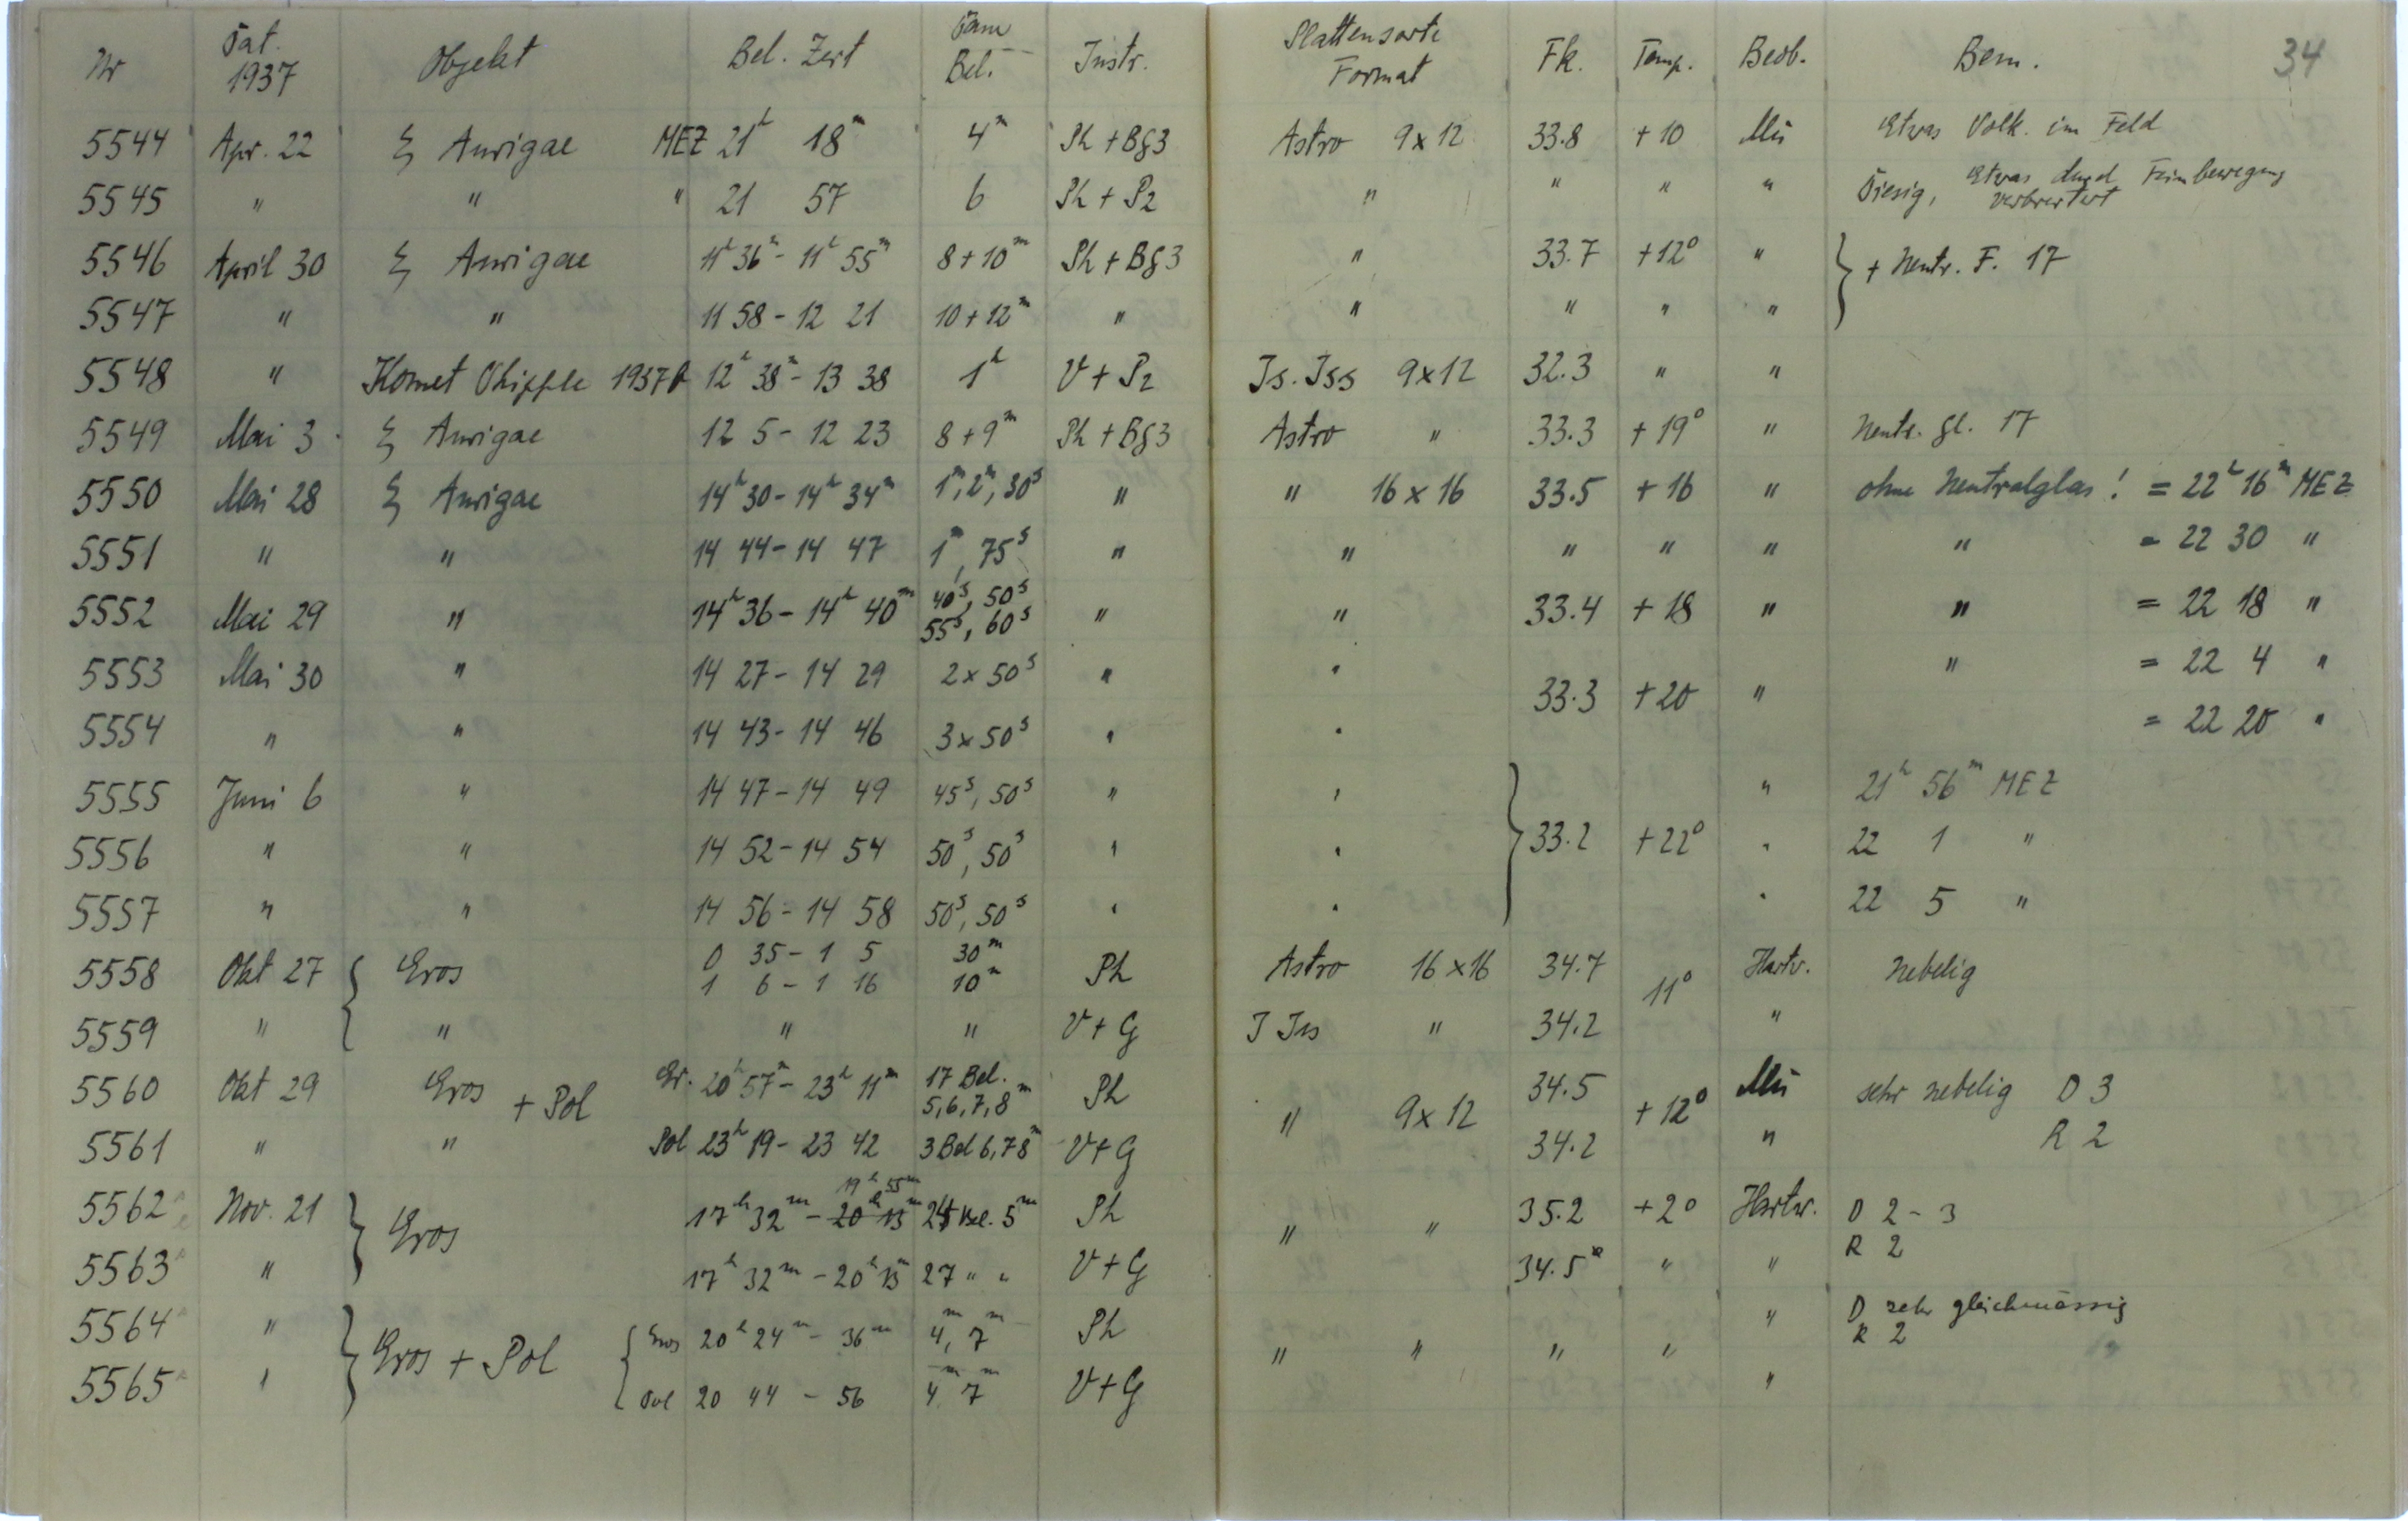 Nr Dat. 1937 Objekt Bel. Zeit Dau Bel. Instr. Plattensorte Format Fk. Temp. Beob. Bem. 34
5544 Apr. 22 ξ Aurigae MEZ 21h 18m 4m Ph + Bg3 Astro 9x12 33.8 +10 Mü Etwas Volk. im Feld
5545 " " " 21 57 6 Ph + P2 " " " " Diesig, Etwas durch Feinbewegung verbreitert
5546 April 30 ξ Aurigae 11h 36m - 11h 55m 8+10m Ph + Bg3 " 33.7 +12° " } + Neutr. F. 17
5547 " " 11 58 - 12 21 10+12m " " " " "
5548 " Komet Whipple 1937b 12h 38m - 13 38 1h V + P2 Is. Iss 9x12 32.3 " "
5549 Mai 3 ξ Aurigae 12 5 - 12 23 8+9m Ph + Bg3 Astro " 33.3 +19° " Neutr. gl. 17
5550 Mai 28 ξ Aurigae 14h 30 - 14h 34m 1m, 2m, 30s " " 16x16 33.5 +16 " ohne Neutralglas! = 22h 16m MEZ
5551 " " 14 44 - 14 47 1m, 75s " " " " " " = 22 30 "
5552 Mai 29 " 14h 36 - 14h 40m 40s, 50s 55s, 60s " " 33.4 +18 " " = 22 18 "
5553 Mai 30 " 14 27 - 14 29 2x50s " " 33.3 +20 " " = 22 4 "
5554 " " 14 43 - 14 46 3x50s " " = 22 20 "
5555 Juni 6 " 14 47 - 14 49 45s, 50s " " " 21h 56m MEZ
5556 " " 14 52 - 14 54 50s, 50s " " } 33.2 +22° " 22 1 "
5557 " " 14 56 - 14 58 50s, 50s " " " 22 5 "
5558 Okt 27 { Eros 0 35 - 1 5 30m 1 6 - 1 16 10m Ph Astro 16x16 34.7 11° Hartw. Nebelig
5559 " " " " V + G I Iss " 34.2 "
5560 Okt 29 Eros + Pol Er. 20h 57m - 23h 11m 17 Bel. 5, 6, 7, 8m Ph " 9x12 34.5 +12° Mü sehr nebelig D 3
5561 " " Pol 23h 19 - 23 42 3 Bel 6, 7 8m V + G 34.2 " R 2
5562 Nov. 21 } Eros 17h 32m - 20h 13m 19h 55m 24 Bel. 5m Ph " " 35.2 +2° Hartw. D 2 - 3
5563 " 17h 32m - 20h 13m 27 " " V + G 34.5 " " R 2
5564 " } Eros + Pol { Eros 20h 24m - 36m 4m, 7m Ph " " " " " D sehr gleichmässig R 2
5565 " Pol 20 44 - 56 4m 7m V + G "